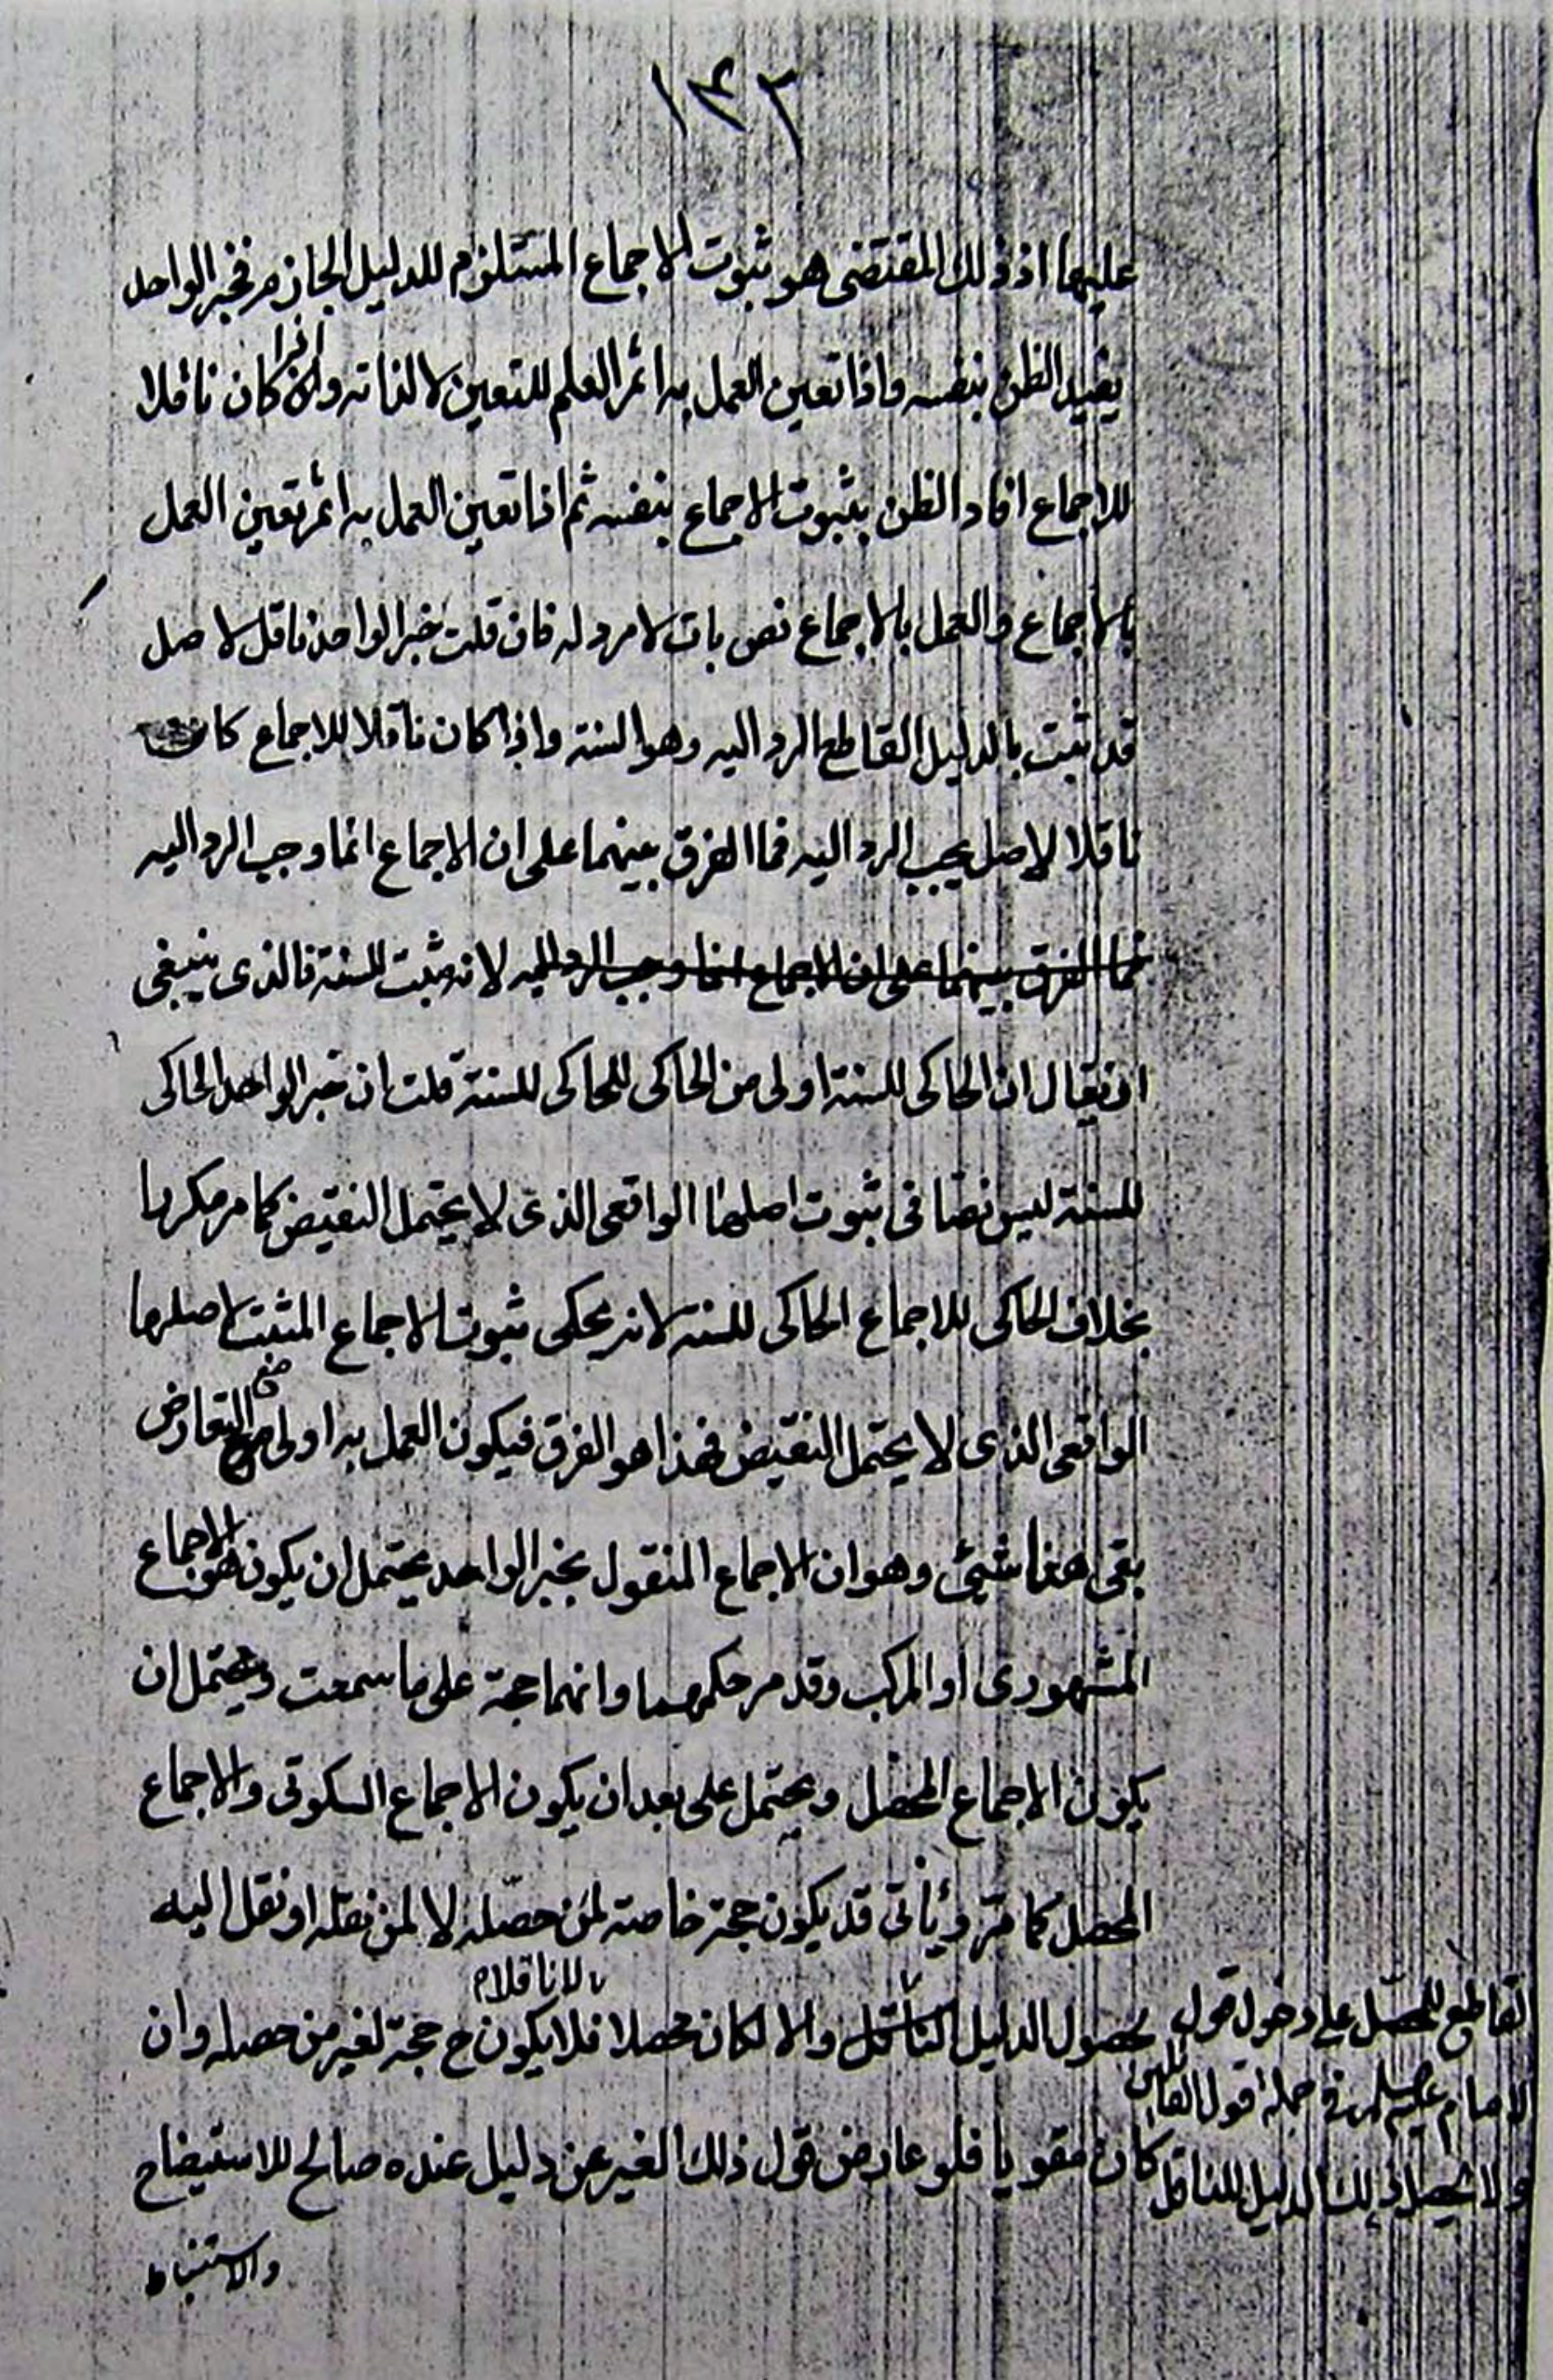 ١٤٢
عليهما اذ ذلك المقتضى هو ثبوت الاجماع المستلزم للدليل الجازم فخبر الواحد
يفيد الظن بنفسه واذا تعين العمل به اثمر العلم للتعين لا لذاته واذا كان ناقلا
للاجماع افاد الظن بثبوت الاجماع بنفسه ثم اذا تعين العمل به اثمر تعين العمل
بالاجماع والعمل بالاجماع نص بات لا مرد له فان قلت خبر الواحد ناقل لاصل
قد ثبت بالدليل القاطع الرد اليه وهو السنة واذا كان ناقلا للاجماع كان
ناقلا لاصل يجب الرد اليه فما الفرق بينهما على ان الاجماع انما وجب الرد اليه
فما الفرق بينهما على ان الاجماع انما وجب الرد اليه لانه مثبت للسنة فالذى ينبغى
ان يقال ان الحاكى للسنة اولى من الحاكى للحاكى للسنة قلت ان خبر الواحد الحاكى
للسنة ليس نصا فى ثبوت اصلها الواقعى الذى لا يحتمل النقيض كما مر مكررا
بخلاف الحاكى للاجماع الحاكى للسنة لانه يحكى ثبوت الاجماع المثبت لاصلها
الواقعى الذى لا يحتمل النقيض فهذا هو الفرق فيكون العمل به اولى مع التعارض
بقى هنا شيئ وهو ان الاجماع المنقول بخبر الواحد يحتمل ان يكون هو الاجماع
المشهورى او المركب وقد مر حكمهما وانهما حجة على ما سمعت ويحتمل ان
يكون الاجماع المحصل ويحتمل على بعد ان يكون الاجماع السكوتى والاجماع
المحصل كما مرّ ويأتى قد يكون حجة خاصة لمن حصّله لا لمن نقله او نقل اليه
لحصول الدليل والا لكان محصلا فلا يكون ح حجة لغير من حصله وان
لا ناقلا
القاطع للمحصّل على دخول قول
الامام عليه السلام فى جملة اقوال القائلين
ولا يحصل ذلك الدليل للناقل
كان مقويا فلو عارض قول ذلك الغير عن دليل عنده صالح للاستيضاح
والاستنباط